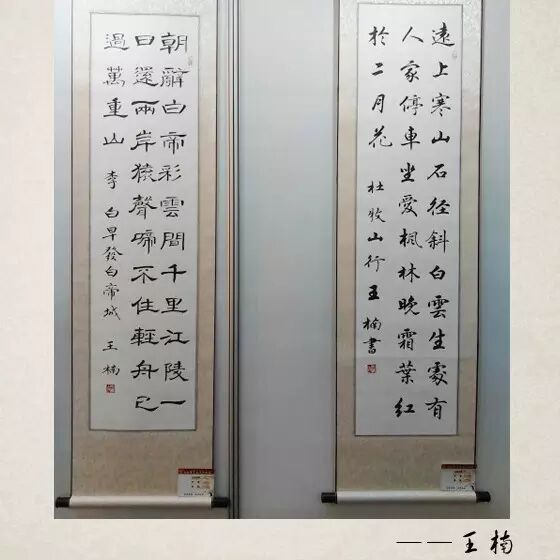 遠上寒山石径斜白雲生處有
人家停車坐愛楓林晚霜葉紅
於二月花 杜牧山行 王楠書
朝辭白帝彩雲間千里江陵一
日還兩岸猿聲啼不住輕舟已
過萬重山 李白早發白帝城 王楠
——王楠